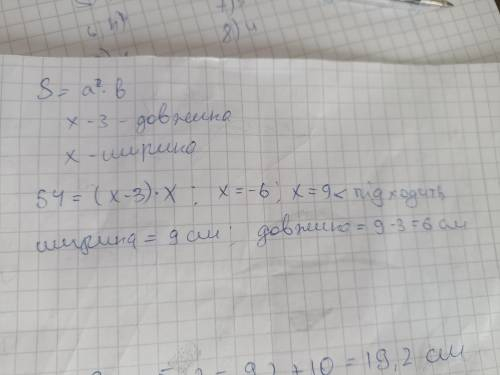 7)
6)
8) 4
S = a · b
x - 3 - довжина
x - ширина
54 = (x-3)·x ; x = -6 ; x = 9 < підходить
ширина = 9 см ; довжина = 9 - 3 = 6 см
= 19,2 см